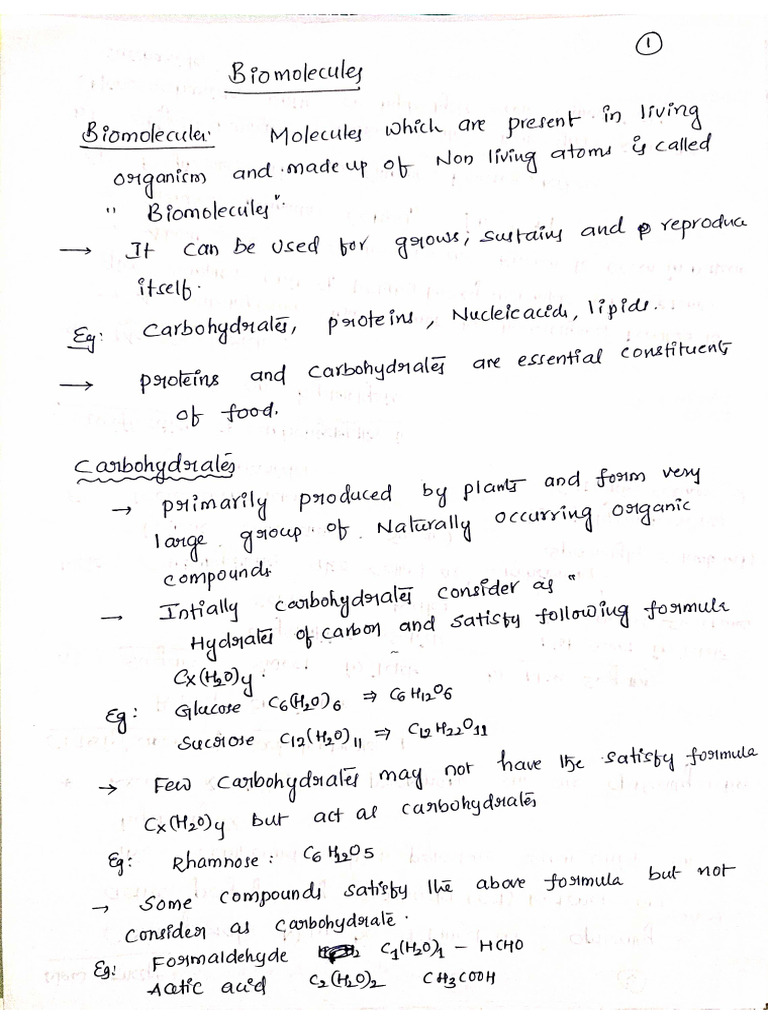 1
Biomolecules
Biomolecules: Molecules which are present in living
organism and made up of Non living atoms is called
" Biomolecules".
→ It can be used for grows, sustains and reproduce
itself.
Eg: Carbohydrates, proteins, Nucleic acids, lipids.
→ proteins and carbohydrates are essential constituents
of food.
Carbohydrates
→ primarily produced by plants and form very
large group of Naturally occurring organic
compounds
→ Intially carbohydrates consider as "
Hydrates of carbon and satisfy following formula
Cx(H₂O)y.
Eg: Glucose C₆(H₂O)₆ ⇒ C₆H₁₂O₆
Sucrose C₁₂(H₂O)₁₁ ⇒ C₁₂H₂₂O₁₁
→ Few Carbohydrates may not have the satisfy formula
Cx(H₂O)y but act as carbohydrates
Eg: Rhamnose: C₆H₁₂O₅
→ Some compounds satisfy the above formula but not
Consider as carbohydrate.
Eg: Formaldehyde C₁(H₂O)₁ - HCHO
Acetic acid C₂(H₂O)₂ CH₃COOH